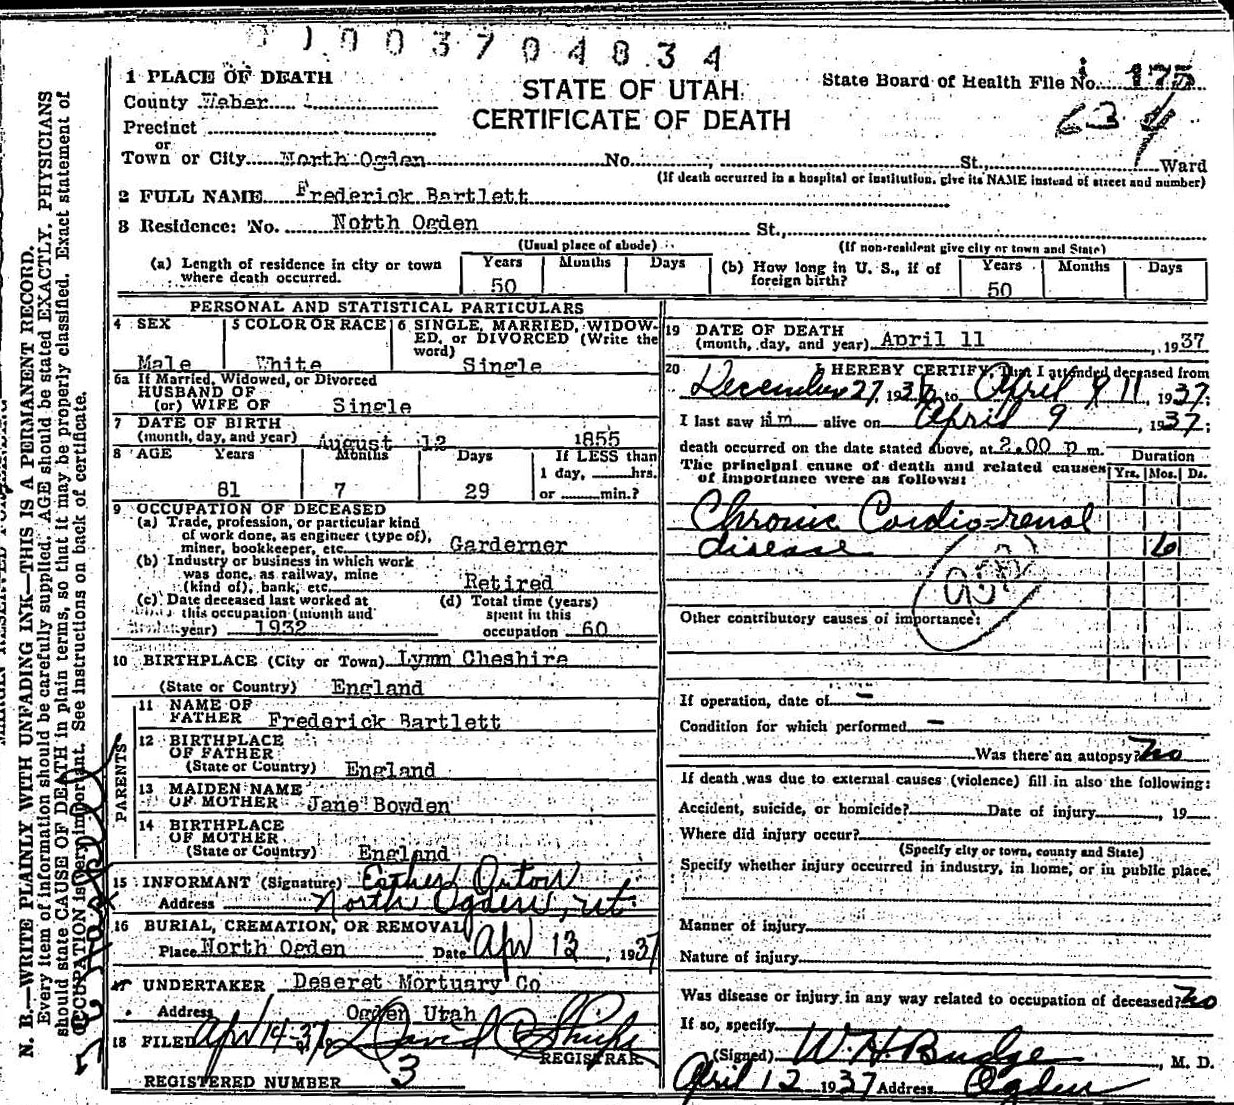 0 1 0 0 3 7 0 4 8 3 4
1 PLACE OF DEATH
STATE OF UTAH
CERTIFICATE OF DEATH
State Board of Health File No. 175
634
County Weber
Precinct
or
Town or City North Ogden No. , St., Ward
(If death occurred in a hospital or institution, give its NAME instead of street and number)
2 FULL NAME Frederick Bartlett
3 Residence: No. North Ogden St.,
(Usual place of abode) (If non-resident give city or town and State)
(a) Length of residence in city or town where death occurred. Years 50 Months Days
(b) How long in U. S., if of foreign birth? Years 50 Months Days
PERSONAL AND STATISTICAL PARTICULARS
4 SEX Male
5 COLOR OR RACE White
6 SINGLE, MARRIED, WIDOW-
ED, or DIVORCED (Write the
word) Single
6a If Married, Widowed, or Divorced
HUSBAND OF
(or) WIFE OF Single
7 DATE OF BIRTH
(month, day, and year) August 12 1855
8 AGE Years 81 Months 7 Days 29 If LESS than
1 day, hrs.
or min.?
9 OCCUPATION OF DECEASED
(a) Trade, profession, or particular kind
of work done, as engineer (type of),
miner, bookkeeper, etc. Garderner
(b) Industry or business in which work
was done, as railway, mine
(kind of), bank, etc. Retired
(c) Date deceased last worked at
this occupation (month and
year) 1932
(d) Total time (years)
spent in this
occupation 60
10 BIRTHPLACE (City or Town) Lymn Cheshire
(State or Country) England
PARENTS
11 NAME OF
FATHER Frederick Bartlett
12 BIRTHPLACE
OF FATHER
(State or Country) England
13 MAIDEN NAME
OF MOTHER Jane Bowden
14 BIRTHPLACE
OF MOTHER
(State or Country) England
15 INFORMANT (Signature) Esther Orton
Address North Ogden, Ut.
16 BURIAL, CREMATION, OR REMOVAL
Place North Ogden Date Apr 13, 1937
17 UNDERTAKER Deseret Mortuary Co
Address Ogden Utah
18 FILED Apr 14-37, 19 David
REGISTRAR
REGISTERED NUMBER 3
19 DATE OF DEATH
(month, day, and year) April 11, 1937
20 I HEREBY CERTIFY, That I attended deceased from
December 27, 1936, to April 9 11, 1937;
I last saw him alive on April 9, 1937;
death occurred on the date stated above, at 2.00 p m.
The principal cause of death and related causes
of importance were as follows:
Duration
Yrs. Mos. Ds.
Chronic Cardio-renal
disease 6
Other contributory causes of importance:
If operation, date of —
Condition for which performed —
Was there an autopsy? No
If death was due to external causes (violence) fill in also the following:
Accident, suicide, or homicide? Date of injury , 19
Where did injury occur?
(Specify city or town, county and State)
Specify whether injury occurred in industry, in home, or in public place.
Manner of injury
Nature of injury
Was disease or injury in any way related to occupation of deceased? No
If so, specify
(Signed) W. H. Budge, M. D.
April 12 1937 Address Ogden
N. B.—WRITE PLAINLY WITH UNFADING INK—THIS IS A PERMANENT RECORD.
Every item of information should be carefully supplied. AGE should be stated EXACTLY. PHYSICIANS
should state CAUSE OF DEATH in plain terms, so that it may be properly classified. Exact statement of
OCCUPATION is very important. See instructions on back of certificate.